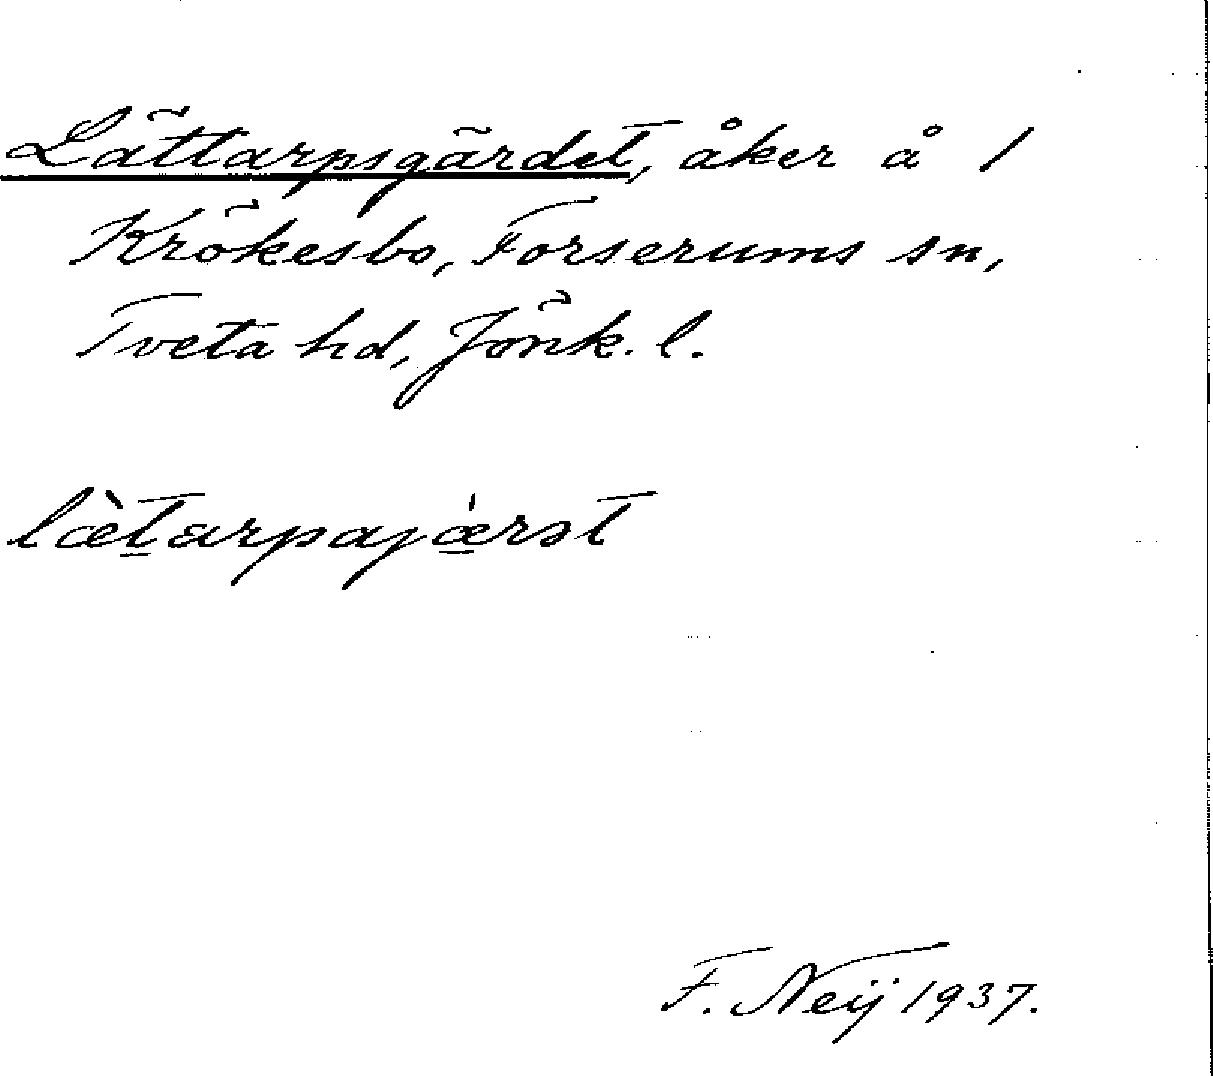 Lättarpsgärdet, åker å 1
Krökesbo, Forserums sn,
Tveta hd, Jönk. l.
læ̀tarpajǽrət
F. Neij 1937.